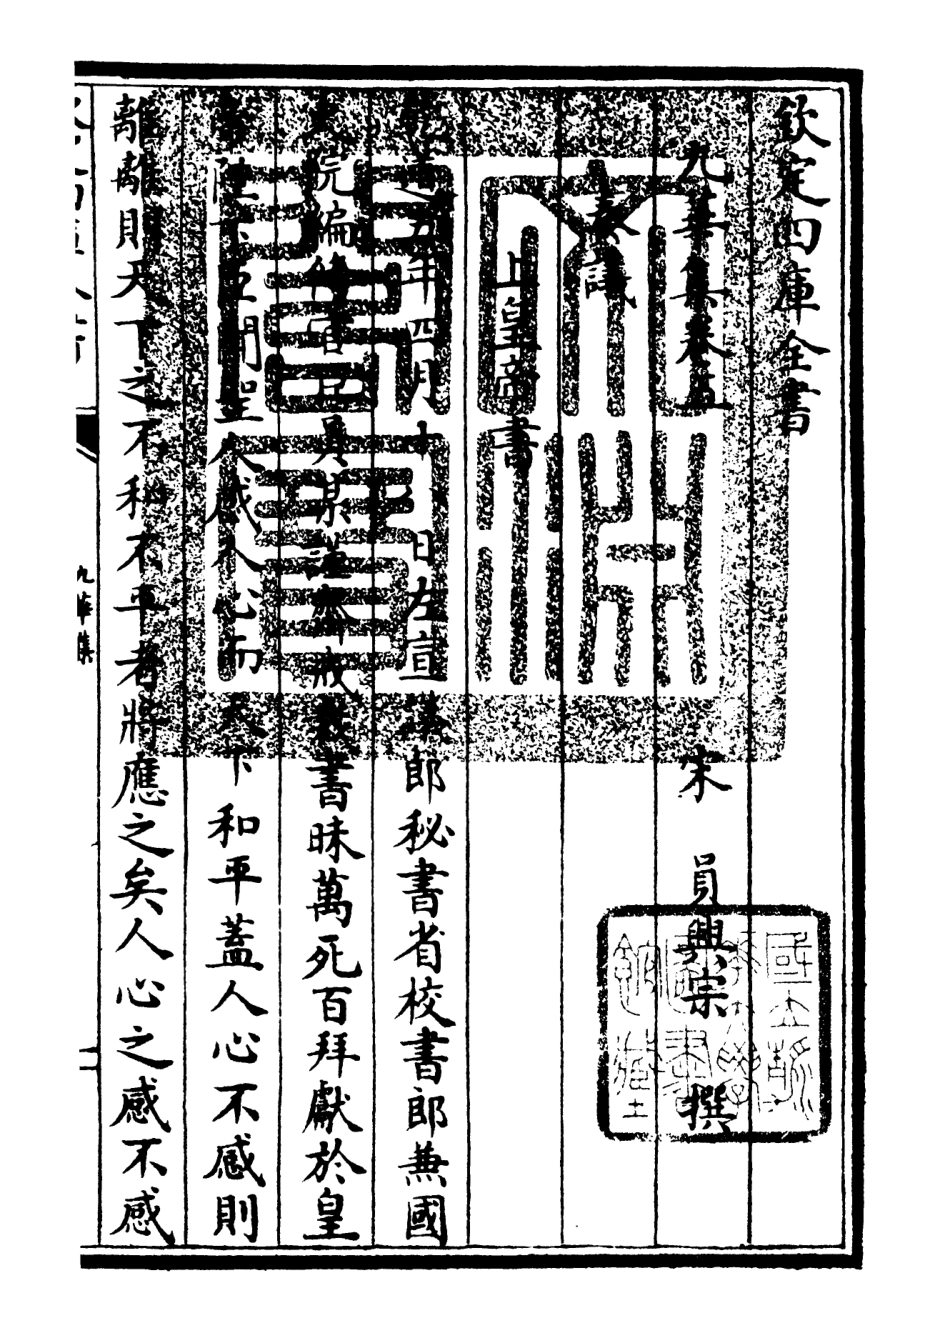 欽定四庫全書
九華集卷五　宋　員興宗　撰
奏議
上皇帝書
乾道五年四月十　日左宣議郎秘書省校書郎兼國
史院編修官臣員某謹齋戒裁書昧萬死百拜獻於皇
帝陛下臣聞聖人感人心而天下和平蓋人心不感則
離離則天下之不和不平者將應之矣人心之感不感
九華集